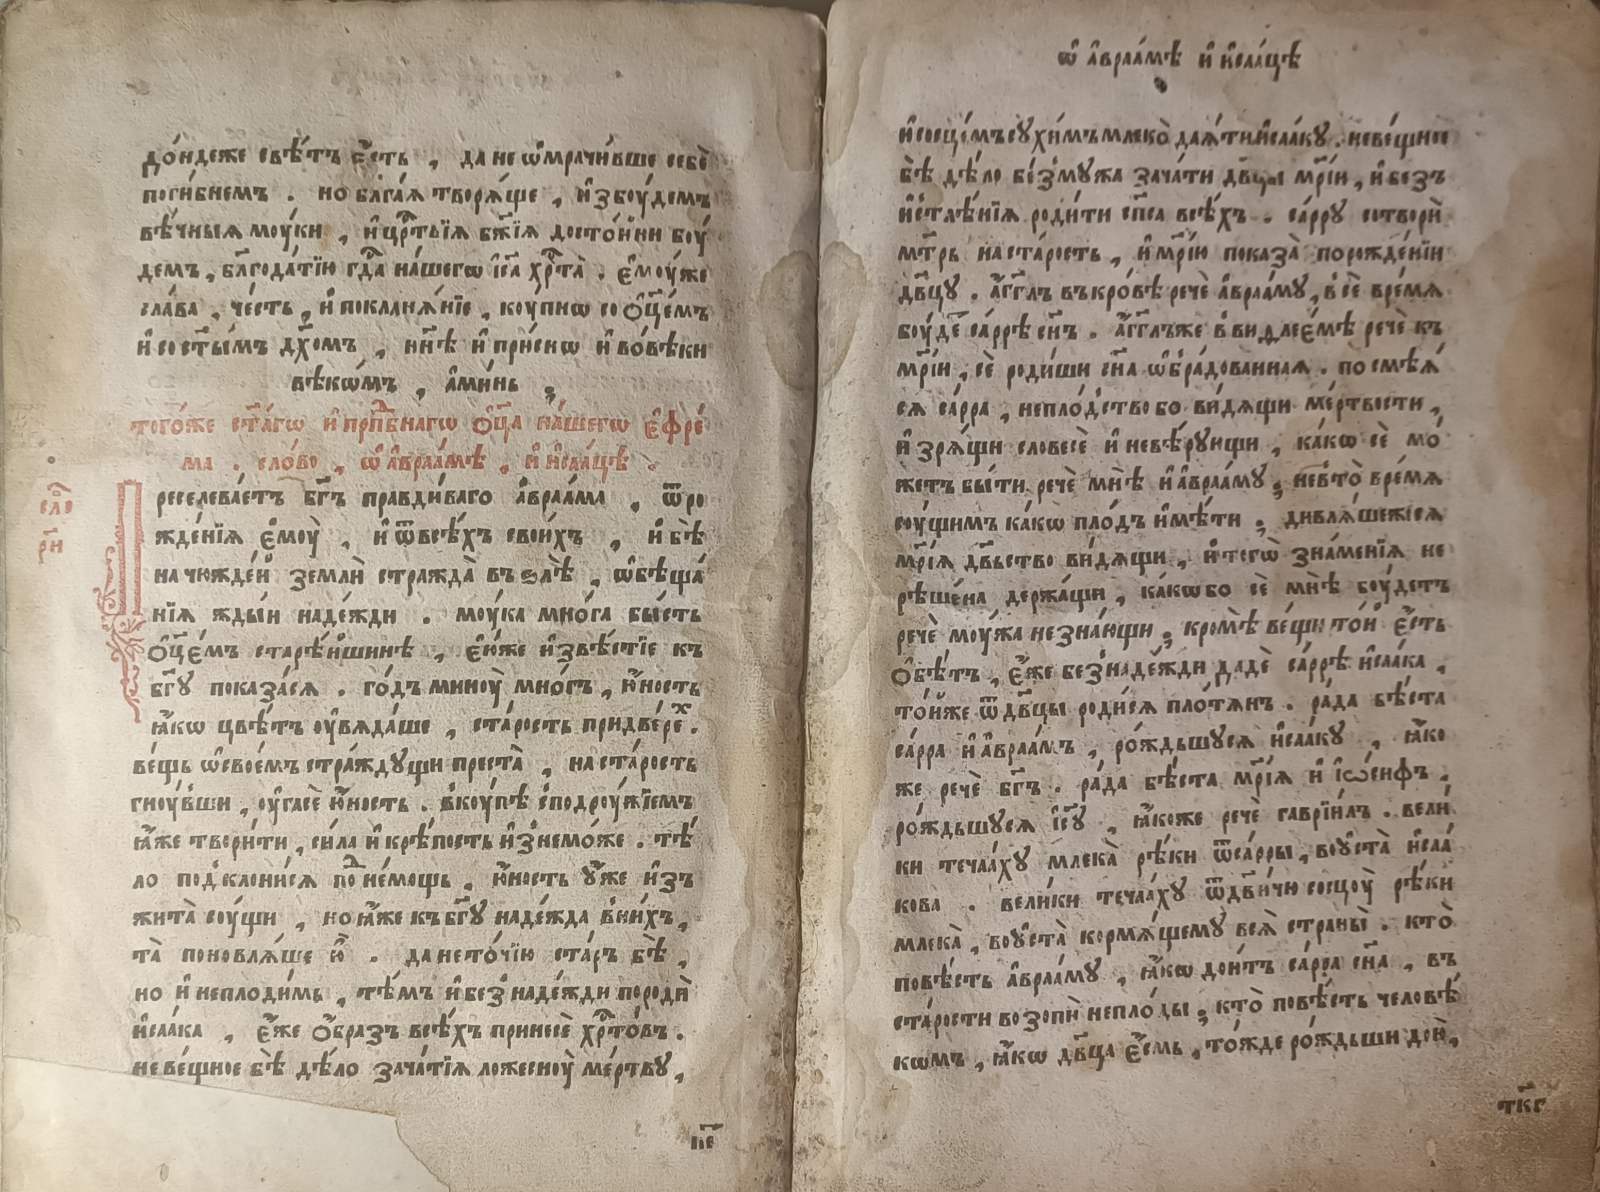 до́ндеже свѣ́тъ є҆́сть , да не ѡ҆мрачи́вше себѐ
поги́бнемъ . но бл҃га́ѧ творѧ́ще , и҆збоу́демъ
вѣ́чныѧ моу́ки , и҆ црⷭ҇твїѧ бж҃їѧ досто́йни боу́
демъ , блгⷣода́тїю гдⷭ҇а на́шегѡ і҆с҃а хрⷭ҇та̀ . є҆моу́же
сла́ва , че́сть , и҆ покланѧ́нїе , коу́пнѡ со ѻ҆ц҃е́мъ
и҆ со ст҃ы́мъ дх҃омъ , нн҃ѣ и҆ при́снѡ и҆ во́вѣки
вѣкѡ́мъ , а҆ми́нь ,
тогѡ́же ст҃а́гѡ и҆ прпⷣбнагѡ ѻ҆ц҃а на́шегѡ є҆фре́
ма . сло́во , ѡ҆ а҆враа́мѣ , и҆ и҆саа́цѣ .
сло́
рн҃и
Преселева́етъ бг҃ъ пра́вдиваго а҆враа́ма , ѿ ро
жде́нїѧ є҆моу̀ , и҆ ѿ всѣ́хъ свои́хъ , и҆ бѣ̀
на чюжде́й землѝ стражда̀ въ ѕлѣ̀ , ѡ҆бѣща́
нїѧ жды́й наде́жди . моу́ка мно́га бы́сть
ѻ҆ц҃є́мъ старѣ́йшинѣ , є҆ю́же и҆звѣ́стїе къ
бг҃у показа́сѧ . го́дъ миноу̀ мно́гъ , ю҆́ность
ꙗ҆́кѡ цвѣ́тъ оу҆вѧда́ше , ста́рость при две́реⷯ .
ве́щь ѡ҆ свое́мъ стра́ждущи преста̀ , на ста́рость
гноу́вши , оу҆гасѐ ю҆́ность . вкоу́пѣ с подроу́жїемъ
ꙗ҆́же твори́ти , си́ла и҆ крѣ́пость и҆знемо́же . тѣ́
ло под̾клони́сѧ поⷣ не́мощь , ю҆́ность у҆́же и҆з̾
жита̀ соу́щи , но ꙗ҆́же къ бг҃у наде́жда в ни́хъ ,
та̀ поновлѧ́ше ю҆̀ . да не то́чїю ста́ръ бѣ̀ ,
но и҆ неплоди́мь , тѣ́мъ и҆ без̾ наде́жди породѝ
и҆саа́ка , є҆́же ѻ҆́бразъ всѣ́хъ принесѐ хрⷭ҇то́въ .
не ве́щное бѣ̀ дѣ́ло зача́тїѧ ложесноу̀ ме́ртву ,
п҃е
ѡ҆ а҆враа́мѣ и҆ и҆саа́цѣ
и҆ сосце́мъ сухи́мъ млеко̀ даѧ́ти и҆саа́ку . не ве́щное
бѣ̀ дѣ́ло без̾ му́жа зача́ти дв҃цы мр҃і́и , и҆ без̾
и҆стлѣ́нїѧ роди́ти сп҃са всѣ́хъ . са́рру сотворѝ
мт҃рь на ста́рость , и҆ мр҃і́ю показа̀ по рожде́нїи
дв҃цу . а҆́гг҃лъ в кро́вѣ речѐ а҆враа́му , в сѐ вре́мѧ
боу́деⷮ са́ррѣ сн҃ъ . а҆́гг҃лъ же в ви́длеемѣ речѐ къ
мр҃і́и , сѐ роди́ши сн҃а ѡ҆бра́дованнаѧ . посмѣѧ́
сѧ са́рра , непло́дство бо ви́дѧщи ме́ртвости ,
и҆ зрѧ́щи словесѐ и҆ не вѣ́рующи , ка́кѡ сѐ мо́
жетъ бы́ти речѐ мнѣ̀ и҆ а҆враа́му , не в то̀ вре́мѧ
соу́щимъ ка́кѡ пло́дъ и҆мѣ́ти ; дивлѧ́шежесѧ
мр҃і́ѧ дв҃ьство ви́дѧщи , и҆ тогѡ̀ зна́менїѧ не
рѣше́на держа́щи , ка́кѡ бо сѐ мнѣ̀ боу́детъ
речѐ моу́жа не зна́ющи ; кромѣ̀ ве́щи то́й є҆́сть
ѻ҆бѣ́тъ , є҆́же без̾ наде́жди дадѐ са́ррѣ и҆саа́ка ,
то́йже ѿ дв҃цы роди́сѧ пло́тѧнъ . ра́да бѣ́ста
са́рра и҆ а҆враа́мъ , ро́ждьшусѧ и҆саа́ку , ꙗ҆́ко
же речѐ бг҃ъ . ра́да бѣ́ста мр҃і́ѧ и҆ і҆ѡ́сифъ ,
ро́ждьшусѧ і҆с҃у , ꙗ҆́коже речѐ гаврїи́лъ . вели́
ки теча́аху млека̀ рѣ́ки ѿ са́рры , во уста̀ и҆саа́
кова . вели́ки теча́аху ѿ дв҃и́чю сосцоу̀ рѣ́ки
млека̀ , во уста̀ кормѧ́щему всѧ̀ страны̀ . кто̀
повѣ́сть а҆враа́му , ꙗ҆́кѡ дои́тъ са́рра сн҃а , въ
ста́рости возопѝ непло́ды ; кто̀ повѣ́сть человѣ́
кѡмъ , ꙗ҆́кѡ дв҃ца є҆́смь , то́жде ро́ждьши дою̀ ,
тк҃г